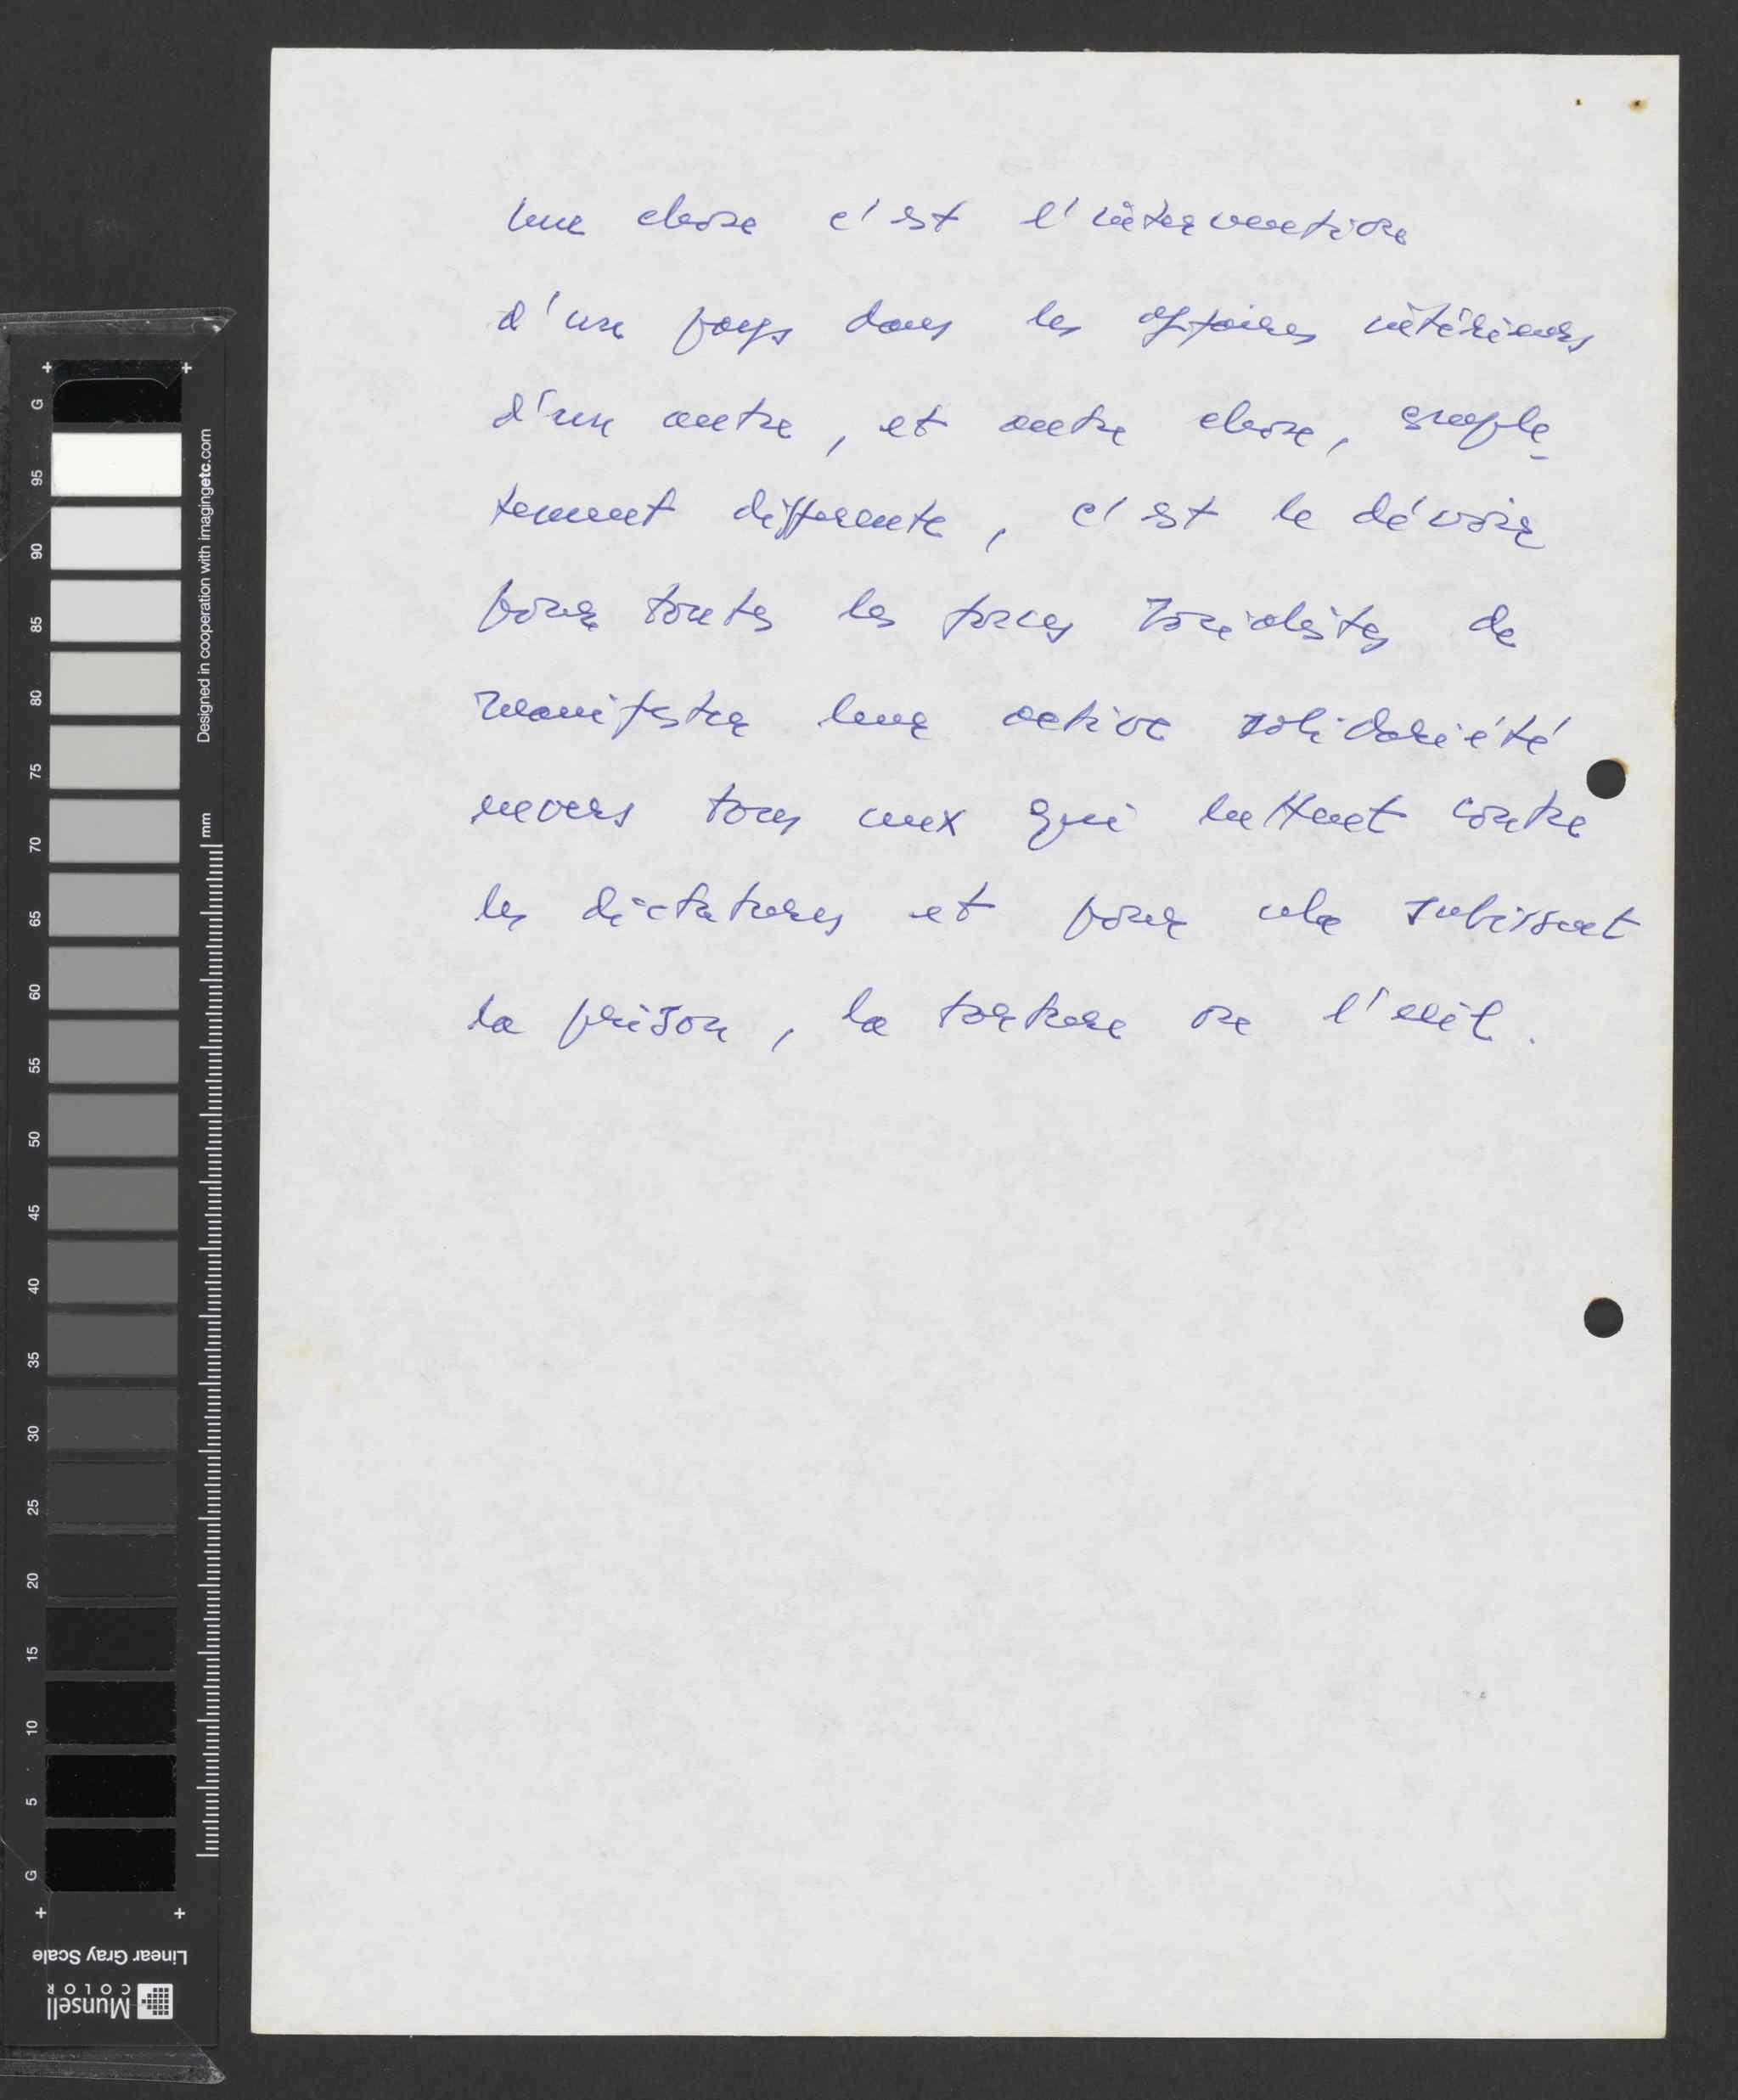 Une chose c'est l'intervention
d'un pays dans les affaires intérieurs
d'un autre, et autre chose, comple-
tement differente, c'est le dévoir
pour toutes les forces socialistes de
manifester leur active solidariété
envers tous ceux qui luttent contre
les dictatures et pour cela subissent
la prison, la torture ou l'exil.
Designed in cooperation with imagingetc.com
mm
G 95 90 85 80 75 70 65 60 55 50 45 40 35 30 25 20 15 10 5 G
Linear Gray Scale
Munsell
COLOR